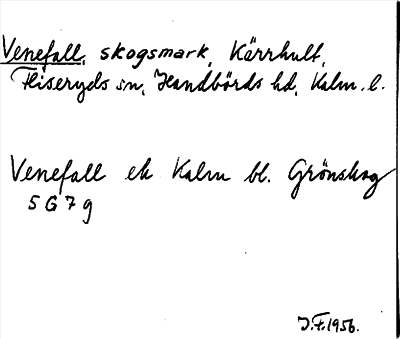 Venefall, skogsmark, Kärrhult,
Fliseryds sn, Handbörds hd, Kalm. l.
Venefall ek Kalm bl. Grönskog
5 G 7 g
J.F. 1956.